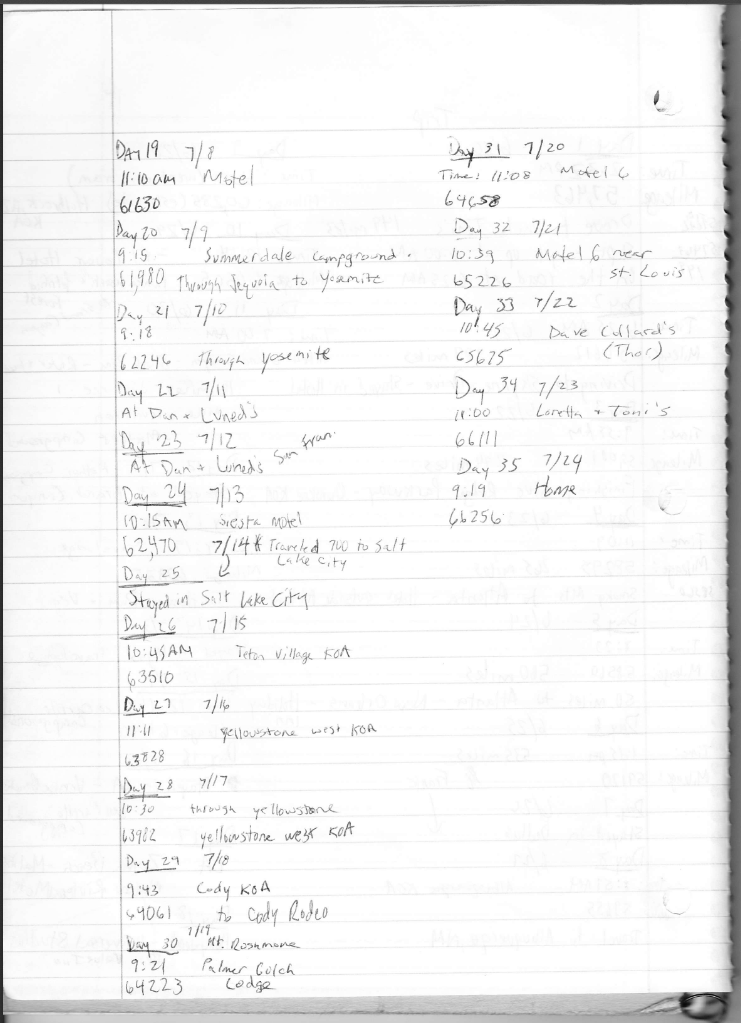 DAY 19 7/8
11:10 am Motel
61630
Day 20 7/9
9:15 Summerdale campground.
61,980 Through Sequoia to Yosemite
Day 21 7/10
9:18
62246 through yosemite
Day 22 7/11
At Dan + Luned's
Day 23 7/12
At Dan + Luned's San Fran.
Day 24 7/13
10:15AM Siesta Motel
62,470 7/14 * Traveled 700 to Salt
Lake City
Day 25
Stayed in Salt Lake City
Day 26 7/15
10:45AM Teton Village KOA
63510
Day 27 7/16
11:11 yellowstone west KOA
63828
Day 28 7/17
10:30 through yellowstone
63982 yellowstone west KOA
Day 29 7/18
9:43 Cody KOA
64061 to Cody Rodeo
Day 30 7/19 Mt. Roshmore
9:21 Palmer Gulch
64223 Lodge
Day 31 7/20
Time: 11:08 Motel 6
64658
Day 32 7/21
10:39 Motel 6 near
65226 St. Louis
Day 33 7/22
10:45 Dave Collard's
65675 (Thor)
Day 34 7/23
11:00 Loretta + Toni's
66111
Day 35 7/24
9:19 Home
66256